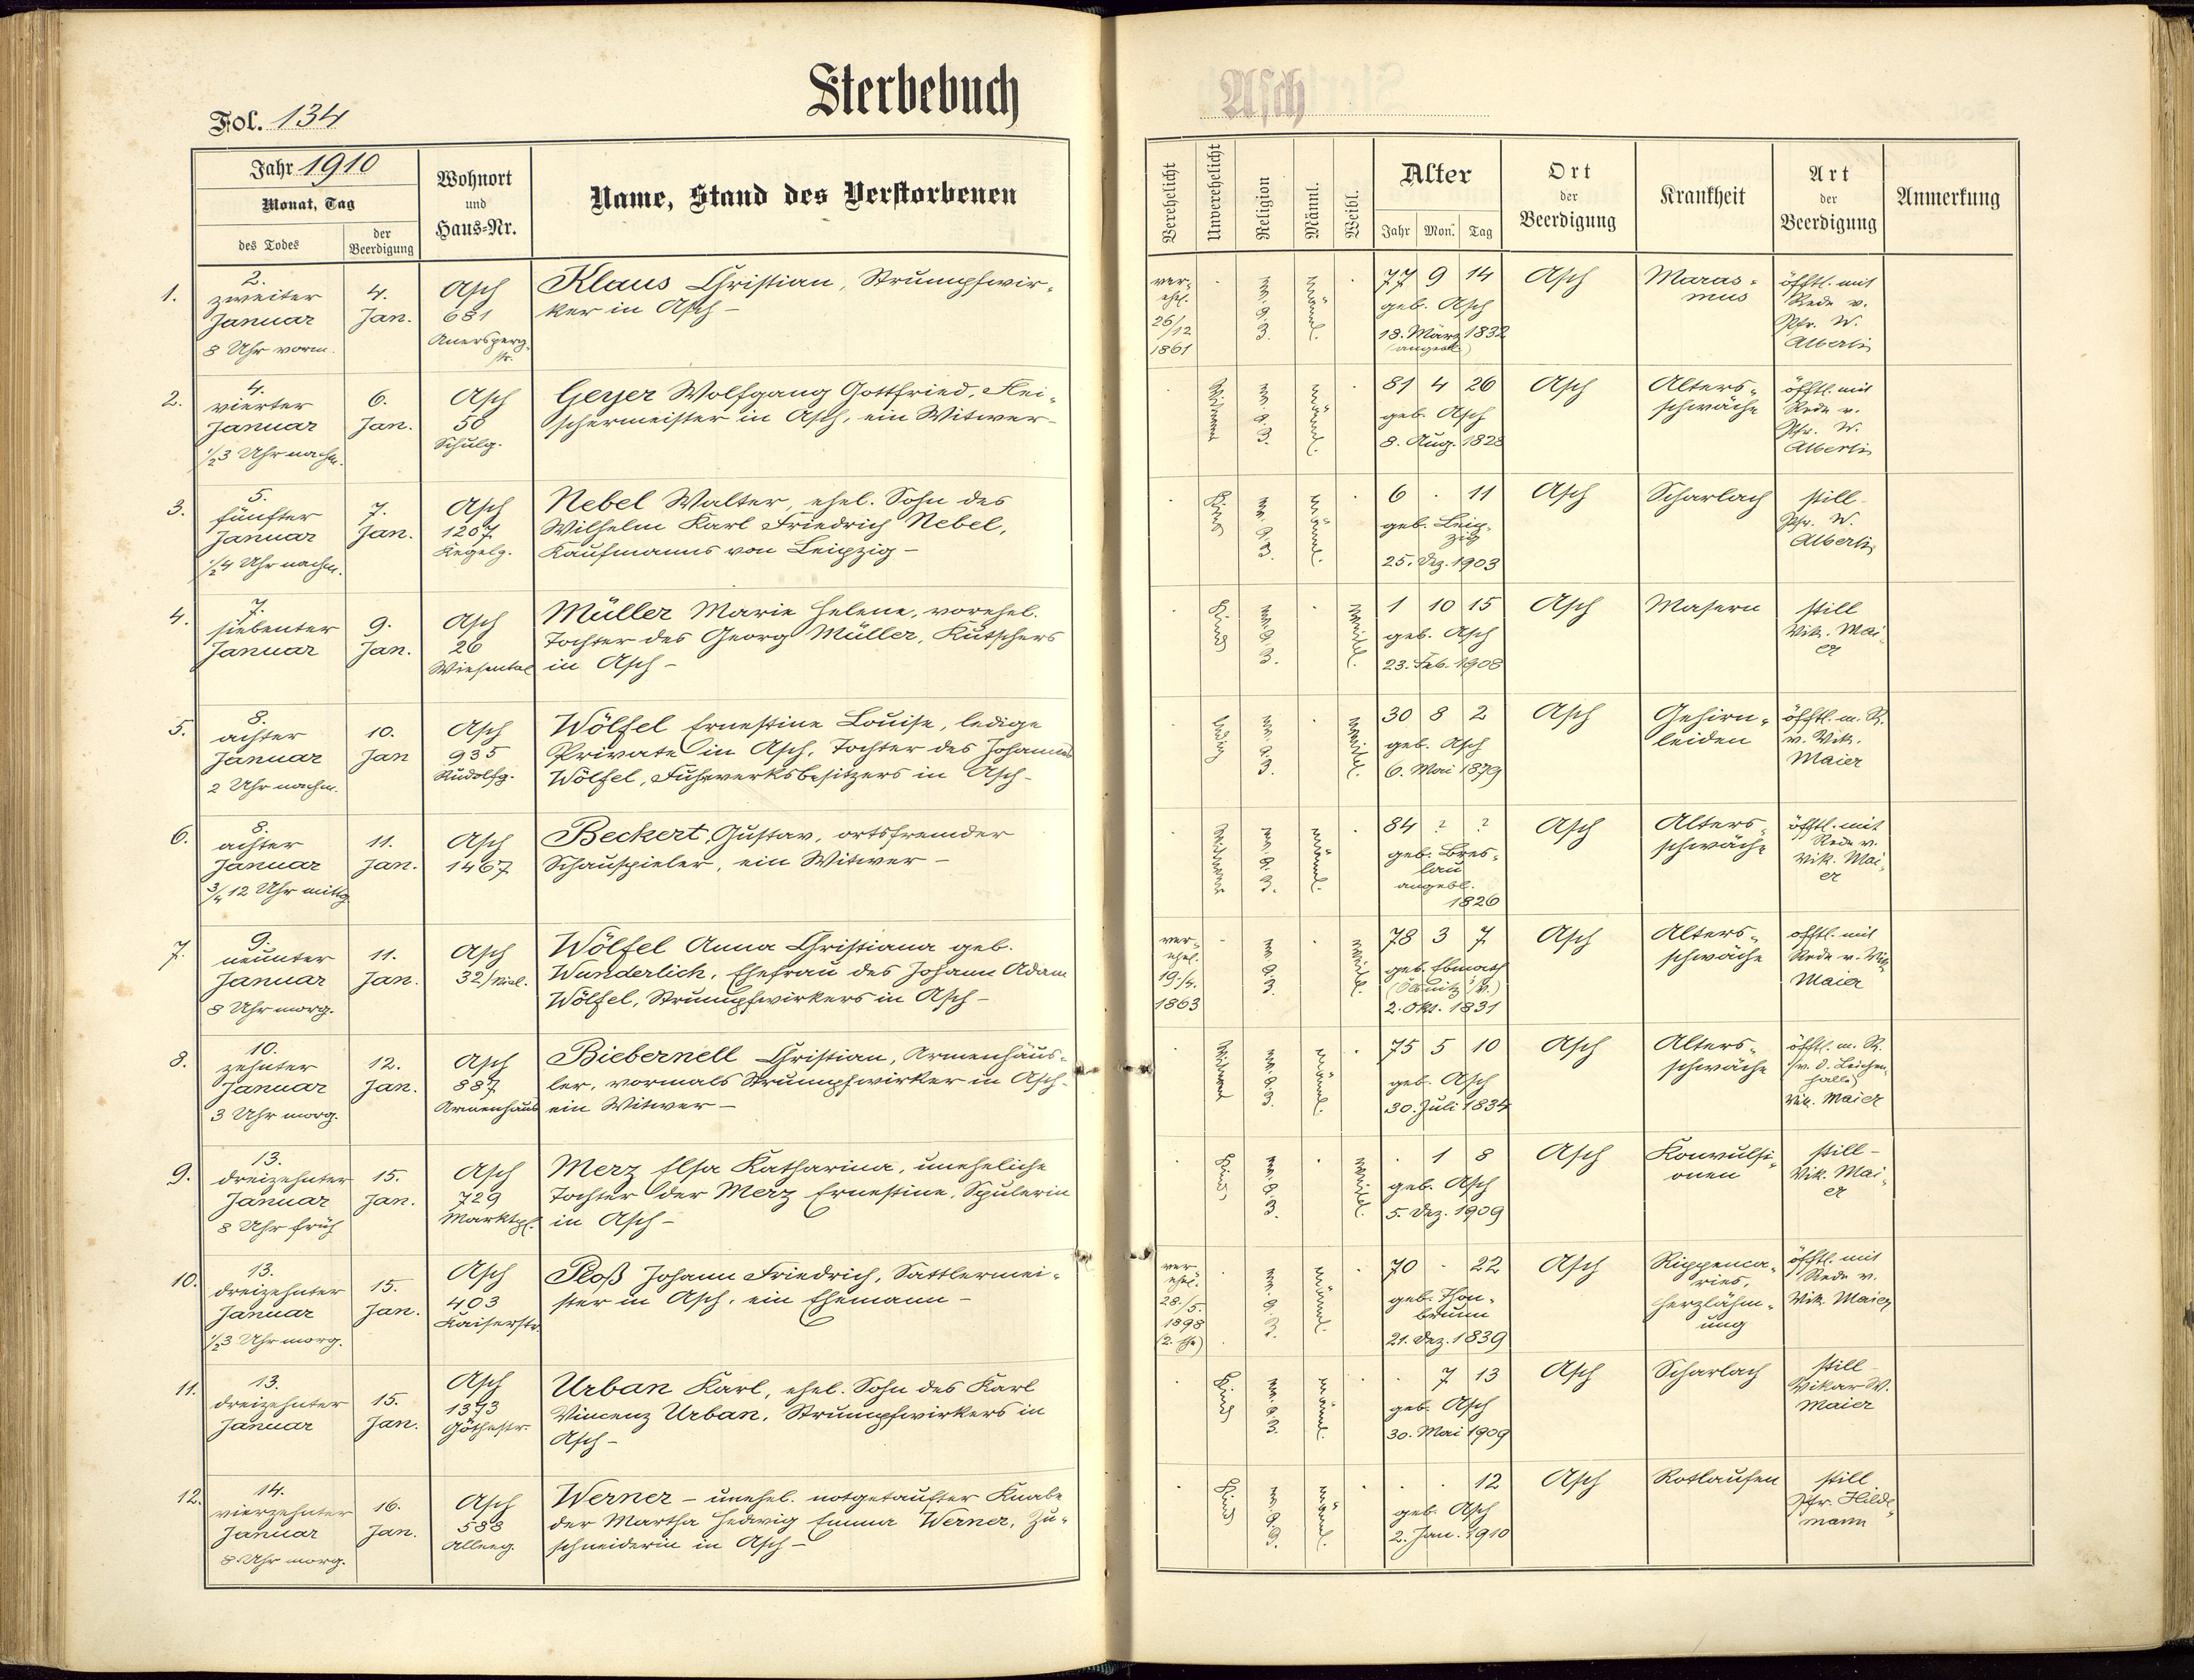 Sterbebuch
Asch
Fol. 134
Jahr 1910
Monat, Tag
des Todes
der Beerdigung
Wohnort
und
Haus-Nr.
Name, Stand des Verstorbenen
Verehelicht
Unverehelicht
Religion
Männl.
Weibl.
Alter
Jahr Mon. Tag
Ort
der
Beerdigung
Krankheit
Art
der
Beerdigung
Anmerkung
1.
2.
zweiter
Januar
8 Uhr vorm.
4.
Jan.
Asch
681
Anersperg-
str.
Klaus Christian, Strumpfwir-
ker in Asch –
ver-
ehl.
26/12
1861
männl.
77 9 14
geb. Asch
18. März 1832
Asch
Maras-
mus
öfftl. mit
Rede v.
Pfr. W.
Alberti
2.
4.
vierter
Januar
1/2 3 Uhr nachm.
6.
Jan.
Asch
56
Schulg.
Geyer Wolfgang Gottfried, Flei-
schermeister in Asch, ein Witwer –
Witwer
männl.
81 4 26
geb. Asch
8. Aug. 1828
Asch
Alters-
schwäche
öfftl. mit
Rede v.
Pfr. W.
Alberti
3.
5.
fünfter
Januar
1/2 4 Uhr nachm.
7.
Jan.
Asch
1207
Kegelg.
Nebel Walter, ehel. Sohn des
Wilhelm Karl Friedrich Nebel,
Kaufmanns von Leipzig –
Kind
männl.
6 · 11
geb. Leip-
zig
25. Dez. 1903
Asch
Scharlach
still –
Pfr. W.
Alberti
4.
7.
siebenter
Januar
9.
Jan.
Asch
26
Wiesental
Müller Marie Helene, vorehel.
Tochter des Georg Müller, Kutschers
in Asch –
Kind
weibl.
1 10 15
geb. Asch
23. Feb. 1908
Asch
Masern
still
Vik. Mai-
er
5.
8.
achter
Januar
2 Uhr nachm.
10.
Jan
Asch
935
Rudolfg.
Wölfel Ernestine Louise, ledige
Private in Asch, Tochter des Johann
Wölfel, Fuhrwerksbesitzers in Asch –
ledig
weibl.
30 8 2
geb. Asch
6. Mai 1879
Asch
Gehirn-
leiden
öfftl. m. R.
v. Vik.
Maier
6.
8.
achter
Januar
3/4 12 Uhr mittg.
11.
Jan.
Asch
1467
Beckert, Gustav, ortsfremder
Schauspieler, ein Witwer –
Witwer
männl.
84 ? ?
geb. Bres-
lau
angebl.
1826
Asch
Alters-
schwäche
öfftl. mit
Rede v.
Vik. Mai-
er
7.
9.
neunter
Januar
8 Uhr morg.
11.
Jan.
Asch
32/Niel.
Wölfel Anna Christiana geb.
Wunderlich, Ehefrau des Johann Adam
Wölfel, Strumpfwirkers in Asch –
ver-
ehel.
19./4.
1863
weibl.
78 3 7
geb. Ebmath
(Ölsnitz i/V.)
2. Okt. 1831
Asch
Alters-
schwäche
öfftl. mit
Rede v. Vik.
Maier
8.
10.
zehnter
Januar
3 Uhr morg.
12.
Jan.
Asch
887
Armenhaus
Biebernell Christian, Armenhäus-
ler, vormals Strumpfwirker in Asch –
ein Witwer –
Witwer
männl.
75 5 10
geb. Asch
30. Juli 1834
Asch
Alters-
schwäche
öfftl. m. R.
(v. d. Leichen-
halle)
Vik. Maier
9.
13.
dreizehnter
Januar
8 Uhr früh
15.
Jan.
Asch
729
Marktpl.
Merz Elsa Katharina, uneheliche
Tochter der Merz Ernestine, Spulerin
in Asch –
Kind
weibl.
· 1 8
geb. Asch
5. Dez. 1909
Asch
Konvulsi-
onen
still –
Vik. Mai-
er
10.
13.
dreizehnter
Januar
1/2 3 Uhr morg.
15.
Jan.
Asch
403
Kaiserstr.
Ploß Johann Friedrich, Sattlermei-
ster in Asch, ein Ehemann –
ver-
ehel.
28./5.
1898
(2. Ehe)
männl.
70 · 22
geb. Thon-
brunn
21. Dez. 1839
Asch
Rippenca-
ries,
Herzlähm-
ung
öfftl. mit
Rede v.
Vik. Maier
11.
13.
dreizehnter
Januar
15.
Jan.
Asch
1373
Göthestr.
Urban Karl, ehel. Sohn des Karl
Vincenz Urban, Strumpfwirkers in
Asch –
Kind
männl.
· 7 13
geb. Asch
30. Mai 1909
Asch
Scharlach
still –
Vikar W.
Maier
12.
14.
vierzehnter
Januar
8 Uhr morg.
16.
Jan.
Asch
588
Alleeg.
Werner – unehel. notgetaufter Knabe
der Martha Hedwig Emma Werner, Zu-
schneiderin in Asch –
Kind
männl.
· · 12
geb. Asch
2. Jan. 1910
Asch
Rotlaufen
still
Pfr. Hilde-
mann